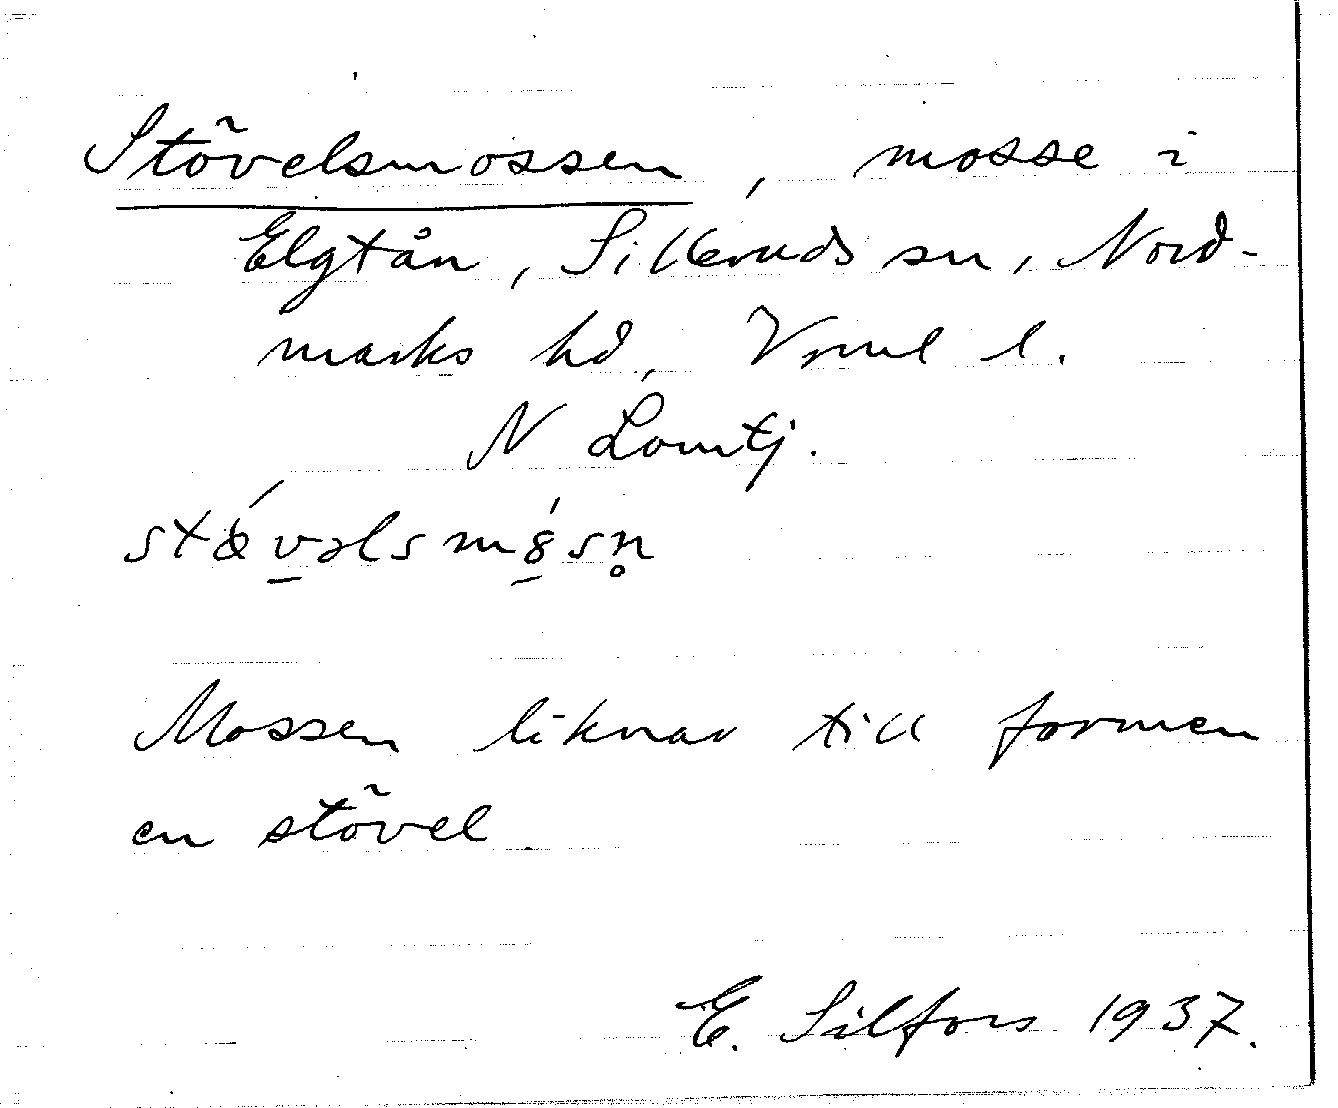 Stövelsmossen, mosse i
Elgtån, Silleruds sn, Nord-
marks hd, Vrml l.
N Lomtj.
stǿv̠əlsmȣ̠́sn̥
Mossen liknar till formen
en stövel.
E. Silfors 1937.